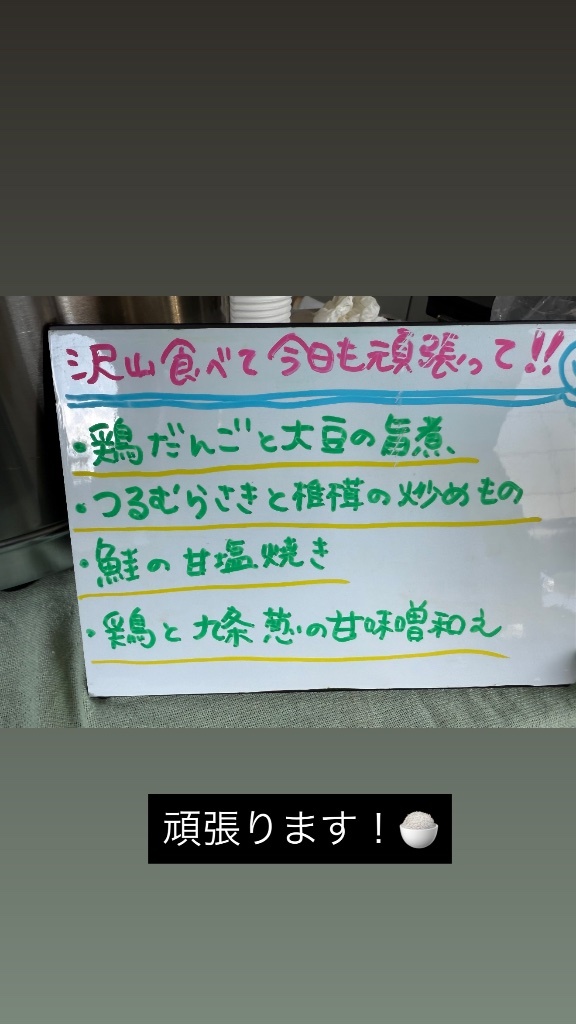 沢山食べて今日も頑張って!!
・鶏だんごと大豆の旨煮
・つるむらさきと椎茸の炒めもの
・鮭の甘塩焼き
・鶏と九条葱の甘味噌和え
頑張ります！🍚